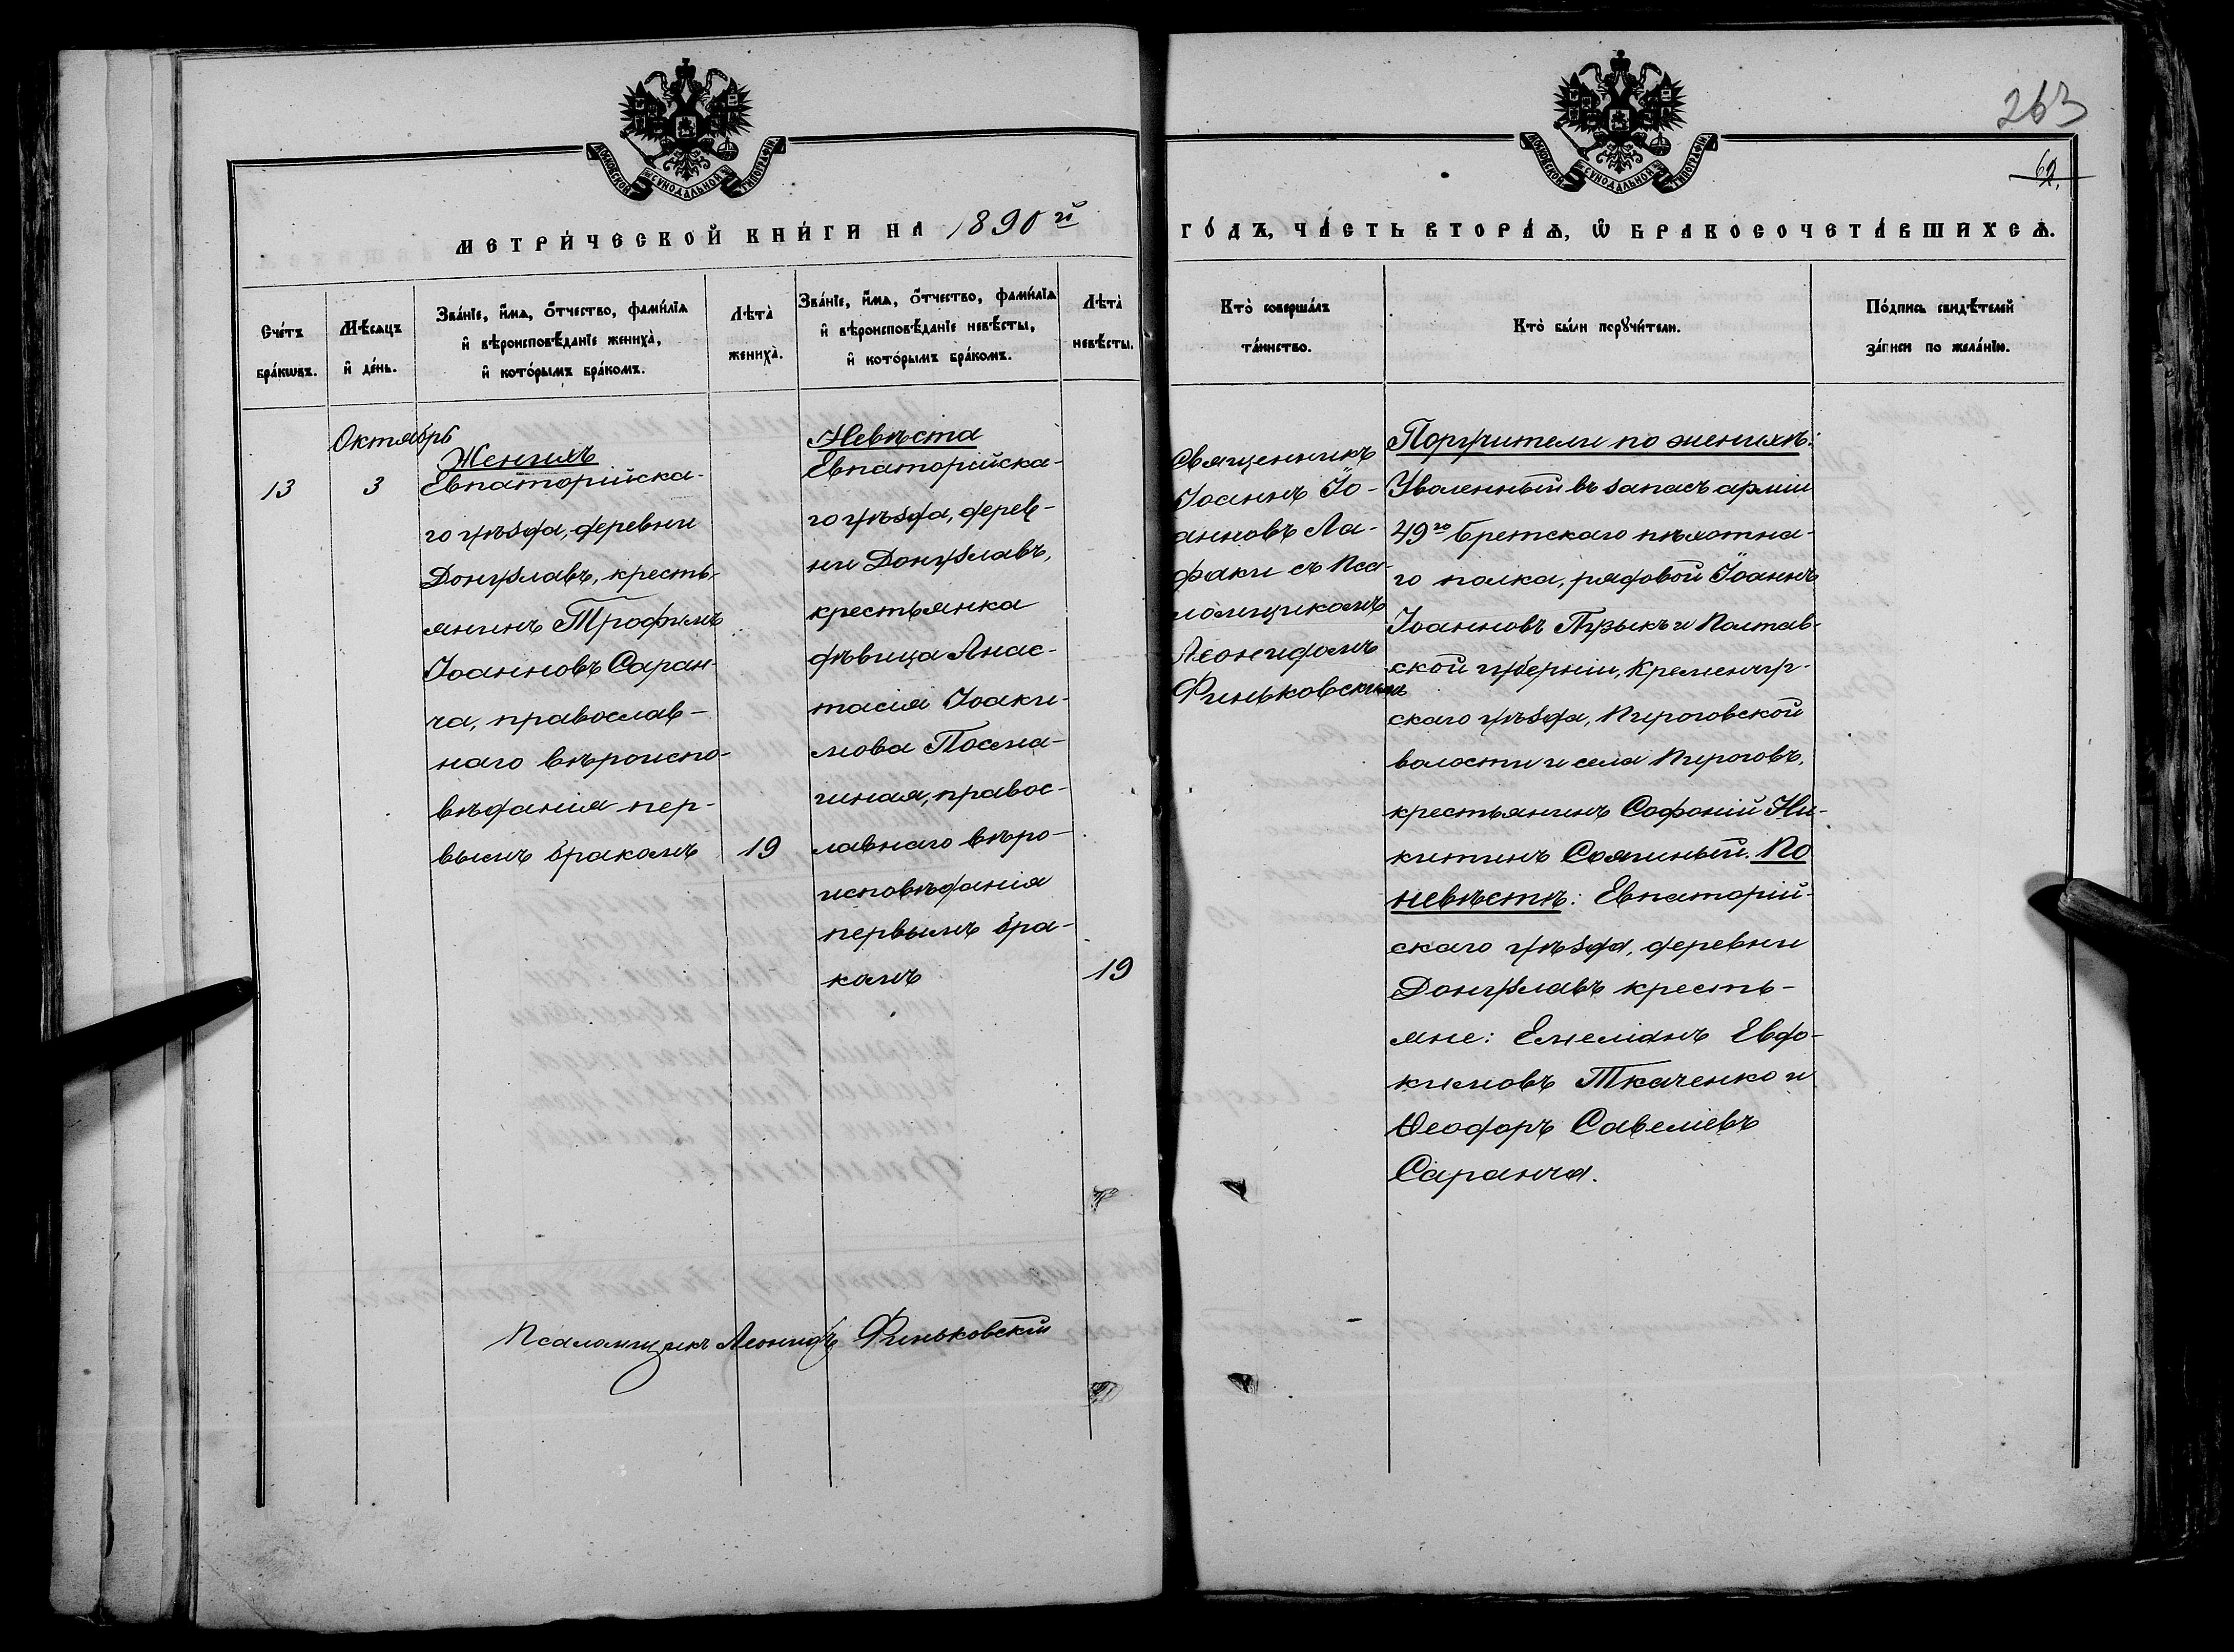 263
62.
МОСКОВСКОЙ СѴНОДАЛЬНОЙ ТИПОГРАФІИ
МОСКОВСКОЙ СѴНОДАЛЬНОЙ ТИПОГРАФІИ
МЕТРИ́ЧЕСКОЙ КНИ́ГИ НА 1890й
ГО́ДЪ, ЧА́СТЬ ВТОРА́Ѧ, Ѽ БРАКОСОЧЕТА́ВШИХСѦ.
Сче́тъ бра́кѡвъ.
Мѣ́сяцъ и҆ де́нь.
Зва́нїе, и҆́мѧ, ѻ҆́тчество, фами́лїѧ и҆ вѣроисповѣ́данїе жениха̀, и҆ кото́рымъ бра́комъ.
Лѣта̀ жениха̀.
Зва́нїе, и҆́мѧ, ѻ҆́тчество, фами́лїѧ и҆ вѣроисповѣ́данїе невѣ́сты, и҆ кото́рымъ бра́комъ.
Лѣта̀ невѣ́сты.
Кто̀ соверша́лъ та́инство.
Кто̀ бы́ли порꙋчи́тели.
По́дпись свидѣ́телей за́писи по жела́нїю.
13
Октябрь
3
Женихъ
Евпаторійска-
го уѣзда, деревни
Донузлавъ, кресть-
янинъ Трофимъ
Іоанновъ Саран-
ча, православ-
наго вѣроиспо-
вѣданія пер-
вымъ бракомъ
19
Невѣста
Евпаторійска-
го уѣзда, дерев-
ни Донузлавъ,
крестьянка
дѣвица Анас-
тасія Іоаки-
мова Посма-
шная, правос-
лавнаго вѣро-
исповѣданія
первымъ бра-
комъ
19
Священникъ
Іоаннъ Іо-
анновъ Ла-
факи съ Пса-
ломщикомъ
Леонидомъ
Финьковскимъ
Поручители по женихѣ:
Уволенный въ запасъ арміи
49го Брестскаго пѣхотна-
го полка, рядовой Іоаннъ
Іоанновъ Пузыкъ и Полтав-
ской губерніи, Кременчуг-
скаго уѣзда, Пироговской
волости и села Пироговъ,
крестьянинъ Софоній Ни-
китинъ Сояшный. По
невѣстѣ: Евпаторій-
скаго уѣзда, деревни
Донузлавъ кресть-
яне: Емеліанъ Евдо-
кимовъ Ткаченко и
Ѳеодоръ Савеліевъ
Саранча.
Псаломщикъ Леонидъ Финьковскій